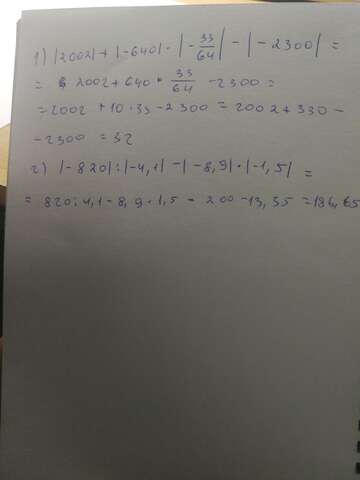 1) |2002| + |-640| · |-33/64| - |-2300| =
= 2002 + 640 · 33/64 - 2300 =
= 2002 + 10 · 33 - 2300 = 2002 + 330 -
- 2300 = 32
2) |-820| : |-4,1| - |-8,9| · |-1,5| =
= 820 : 4,1 - 8,9 · 1,5 = 200 - 13,35 = 186,65